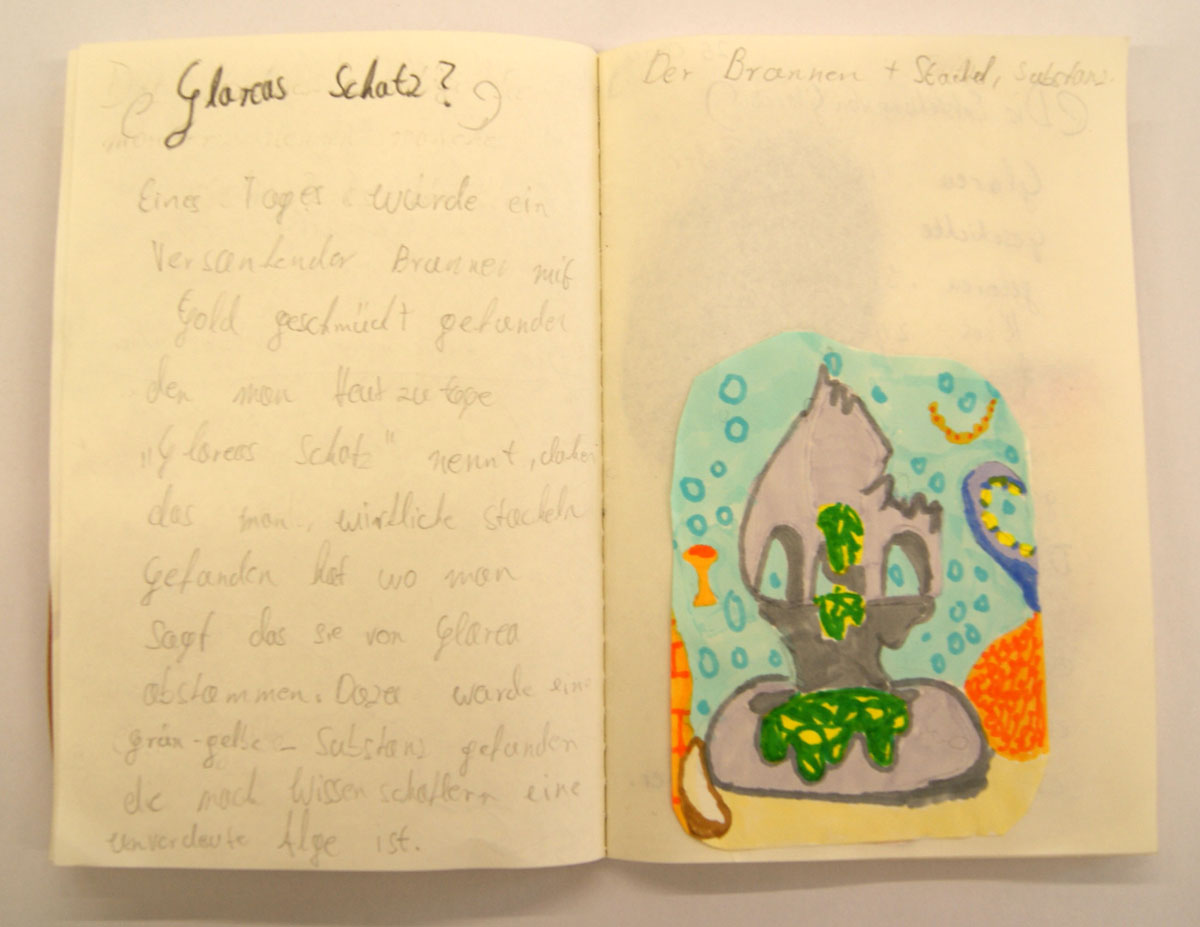 Glareas Schatz?
Eines Tages wurde ein
Versankender Brunnen mit
Gold geschmückt gefunden
den man Heut zu tage
"Glareas Schatz" nennt, daher
das man, wirkliche stacheln
Gefunden hat wo man
sagt das sie von Glarea
abstammen. Dazu wurde eine
grün-gelbe - Substanz gefunden
die nach Wissenschaftlern eine
unverdeute Alge ist.
Der Brunnen + Stachel, Substanz.